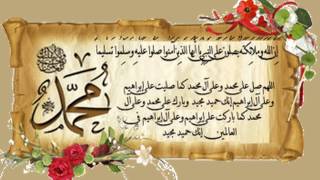 إن الله وملائكته يصلون على النبي يا أيها الذين آمنوا صلوا عليه وسلموا تسليما
اللهم صل على محمد وعلى آل محمد كما صليت على إبراهيم
وعلى آل إبراهيم إنك حميد مجيد وبارك على محمد وعلى آل
محمد كما باركت على إبراهيم وعلى آل إبراهيم في
العالمين إنك حميد مجيد
محمد